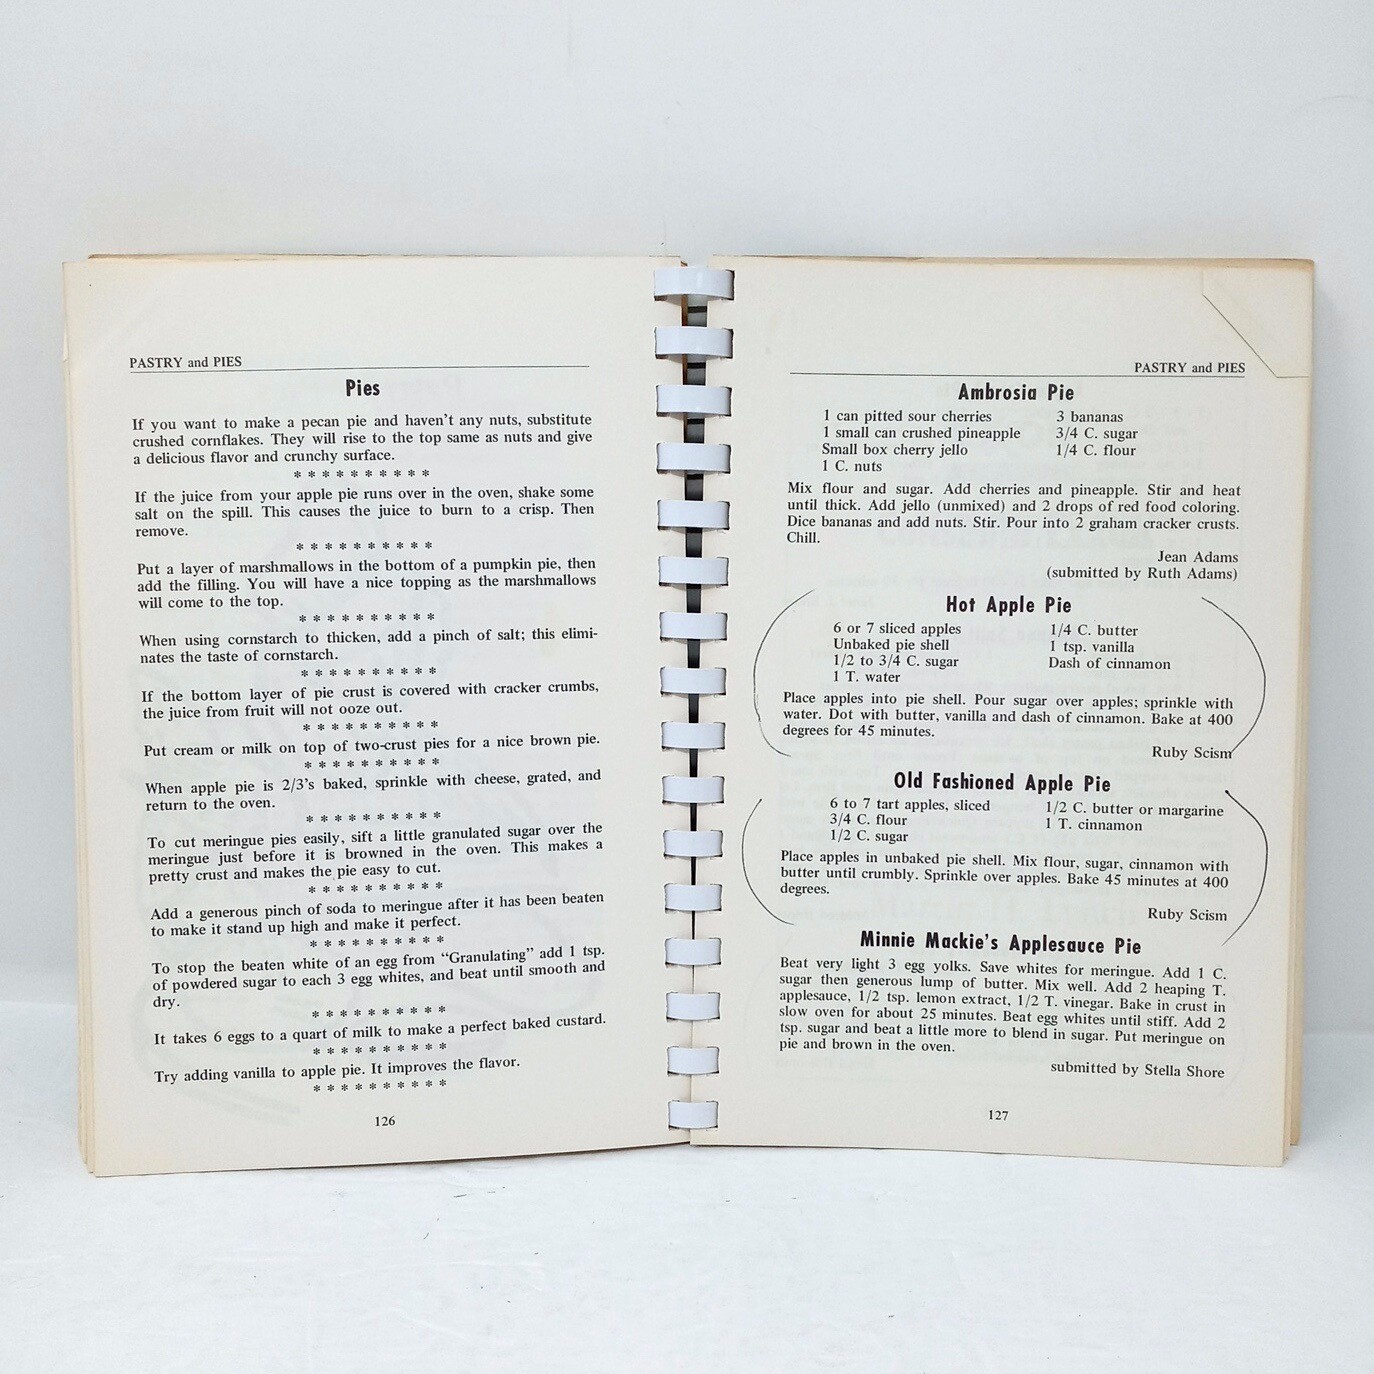 PASTRY and PIES
Pies
If you want to make a pecan pie and haven't any nuts, substitute
crushed cornflakes. They will rise to the top same as nuts and give
a delicious flavor and crunchy surface.
* * * * * * * * * *
If the juice from your apple pie runs over in the oven, shake some
salt on the spill. This causes the juice to burn to a crisp. Then
remove.
* * * * * * * * * *
Put a layer of marshmallows in the bottom of a pumpkin pie, then
add the filling. You will have a nice topping as the marshmallows
will come to the top.
* * * * * * * * * *
When using cornstarch to thicken, add a pinch of salt; this elimi-
nates the taste of cornstarch.
* * * * * * * * * *
If the bottom layer of pie crust is covered with cracker crumbs,
the juice from fruit will not ooze out.
* * * * * * * * * *
Put cream or milk on top of two-crust pies for a nice brown pie.
* * * * * * * * * *
When apple pie is 2/3's baked, sprinkle with cheese, grated, and
return to the oven.
* * * * * * * * * *
To cut meringue pies easily, sift a little granulated sugar over the
meringue just before it is browned in the oven. This makes a
pretty crust and makes the pie easy to cut.
* * * * * * * * * *
Add a generous pinch of soda to meringue after it has been beaten
to make it stand up high and make it perfect.
* * * * * * * * * *
To stop the beaten white of an egg from “Granulating” add 1 tsp.
of powdered sugar to each 3 egg whites, and beat until smooth and
dry.
* * * * * * * * * *
It takes 6 eggs to a quart of milk to make a perfect baked custard.
* * * * * * * * * *
Try adding vanilla to apple pie. It improves the flavor.
* * * * * * * * * *
126
PASTRY and PIES
Ambrosia Pie
1 can pitted sour cherries
1 small can crushed pineapple
Small box cherry jello
1 C. nuts
3 bananas
3/4 C. sugar
1/4 C. flour
Mix flour and sugar. Add cherries and pineapple. Stir and heat
until thick. Add jello (unmixed) and 2 drops of red food coloring.
Dice bananas and add nuts. Stir. Pour into 2 graham cracker crusts.
Chill.
Jean Adams
(submitted by Ruth Adams)
Hot Apple Pie
6 or 7 sliced apples
Unbaked pie shell
1/2 to 3/4 C. sugar
1 T. water
1/4 C. butter
1 tsp. vanilla
Dash of cinnamon
Place apples into pie shell. Pour sugar over apples; sprinkle with
water. Dot with butter, vanilla and dash of cinnamon. Bake at 400
degrees for 45 minutes.
Ruby Scism
Old Fashioned Apple Pie
6 to 7 tart apples, sliced
3/4 C. flour
1/2 C. sugar
1/2 C. butter or margarine
1 T. cinnamon
Place apples in unbaked pie shell. Mix flour, sugar, cinnamon with
butter until crumbly. Sprinkle over apples. Bake 45 minutes at 400
degrees.
Ruby Scism
Minnie Mackie's Applesauce Pie
Beat very light 3 egg yolks. Save whites for meringue. Add 1 C.
sugar then generous lump of butter. Mix well. Add 2 heaping T.
applesauce, 1/2 tsp. lemon extract, 1/2 T. vinegar. Bake in crust in
slow oven for about 25 minutes. Beat egg whites until stiff. Add 2
tsp. sugar and beat a little more to blend in sugar. Put meringue on
pie and brown in the oven.
submitted by Stella Shore
127